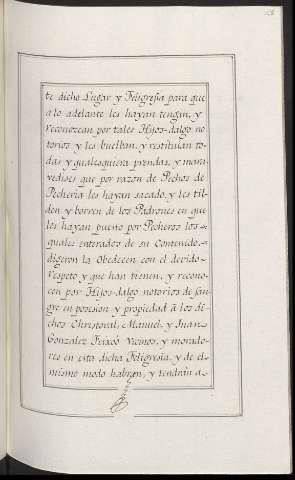 te dicho Lugar y Feligresia para que
a lo adelante les hayan tengan, y
reconozcan por tales Hijos-dalgo no
torios y les buelban, y restituian to
das y qualesquiera prendas, y mara
vedises que por razon de Pechos de
Pecheria les hayan sacado, y les til
den y borren de los Padrones en que
los hayan puesto por Pecheros los
quales enterados de su Contenido
digeron la Obedecen con el devido
respeto y que han tienen, y recono
cen por Hijos-dalgo notorios de san
gre en posesion y propiedad á los di
chos Christoval, Manuel, y Juan
Gonzalez Feixoó vecinos, y morado
res en esta dicha Feligresia, y de el
mismo modo habran, y tendrán a